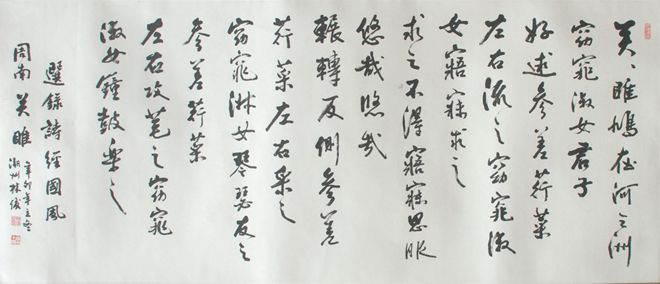 关〻雎鸠在河之洲
窈窕淑女君子
好逑参差荇菜
左右流之窈窕淑
女寤寐求之
求之不得寤寐思服
悠哉悠哉
辗转反侧参差
荇菜左右采之
窈窕淑女琴瑟友之
参差荇菜
左右芼之窈窕
淑女锺鼓乐之
選錄詩經國風
周南关雎
辛卯年之冬
潮州林俊